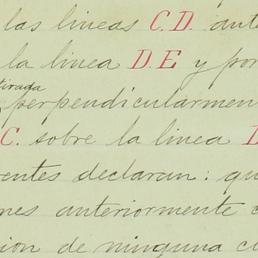 las lineas C.D. ante
la linea D.E y por
tirada
perpendicularmen
C. sobre la linea
entes declaran: qu
nes anteriormente
ion de ninguna cu